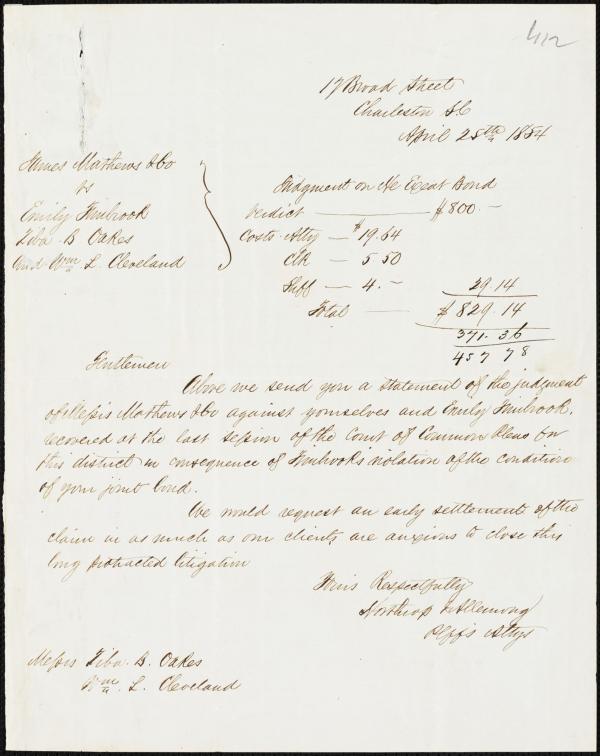 412
17 Broad Street
Charleston So Ca
April 25th 1854
James Mathews & Co
vs
Emily Timbrook
Ziba B Oakes
And Wm. L. Cleveland
Judgment on Ne Exeat Bond
Verdict $800.-
Costs Atty - $19.64
Clk - 5 50
Shff - 4.- 29.14
Total $829.14
371.36
457 78
Gentlemen
Above we send you a statement of the judgment
of Messrs Mathews & Co against yourselves and Emily Timbrook,
recovered at the last session of the Court of Common Pleas for
this district in consequence of Timbrook's violation of the conditions
of your joint bond.
We would request an early settlement of the
claim in as much as our clients are anxious to close this
long protracted litigation
Yours Respectfully
Northrop & Allemong
Plffs Attys
Messrs Ziba. B. Oakes
Wm. L. Cleveland